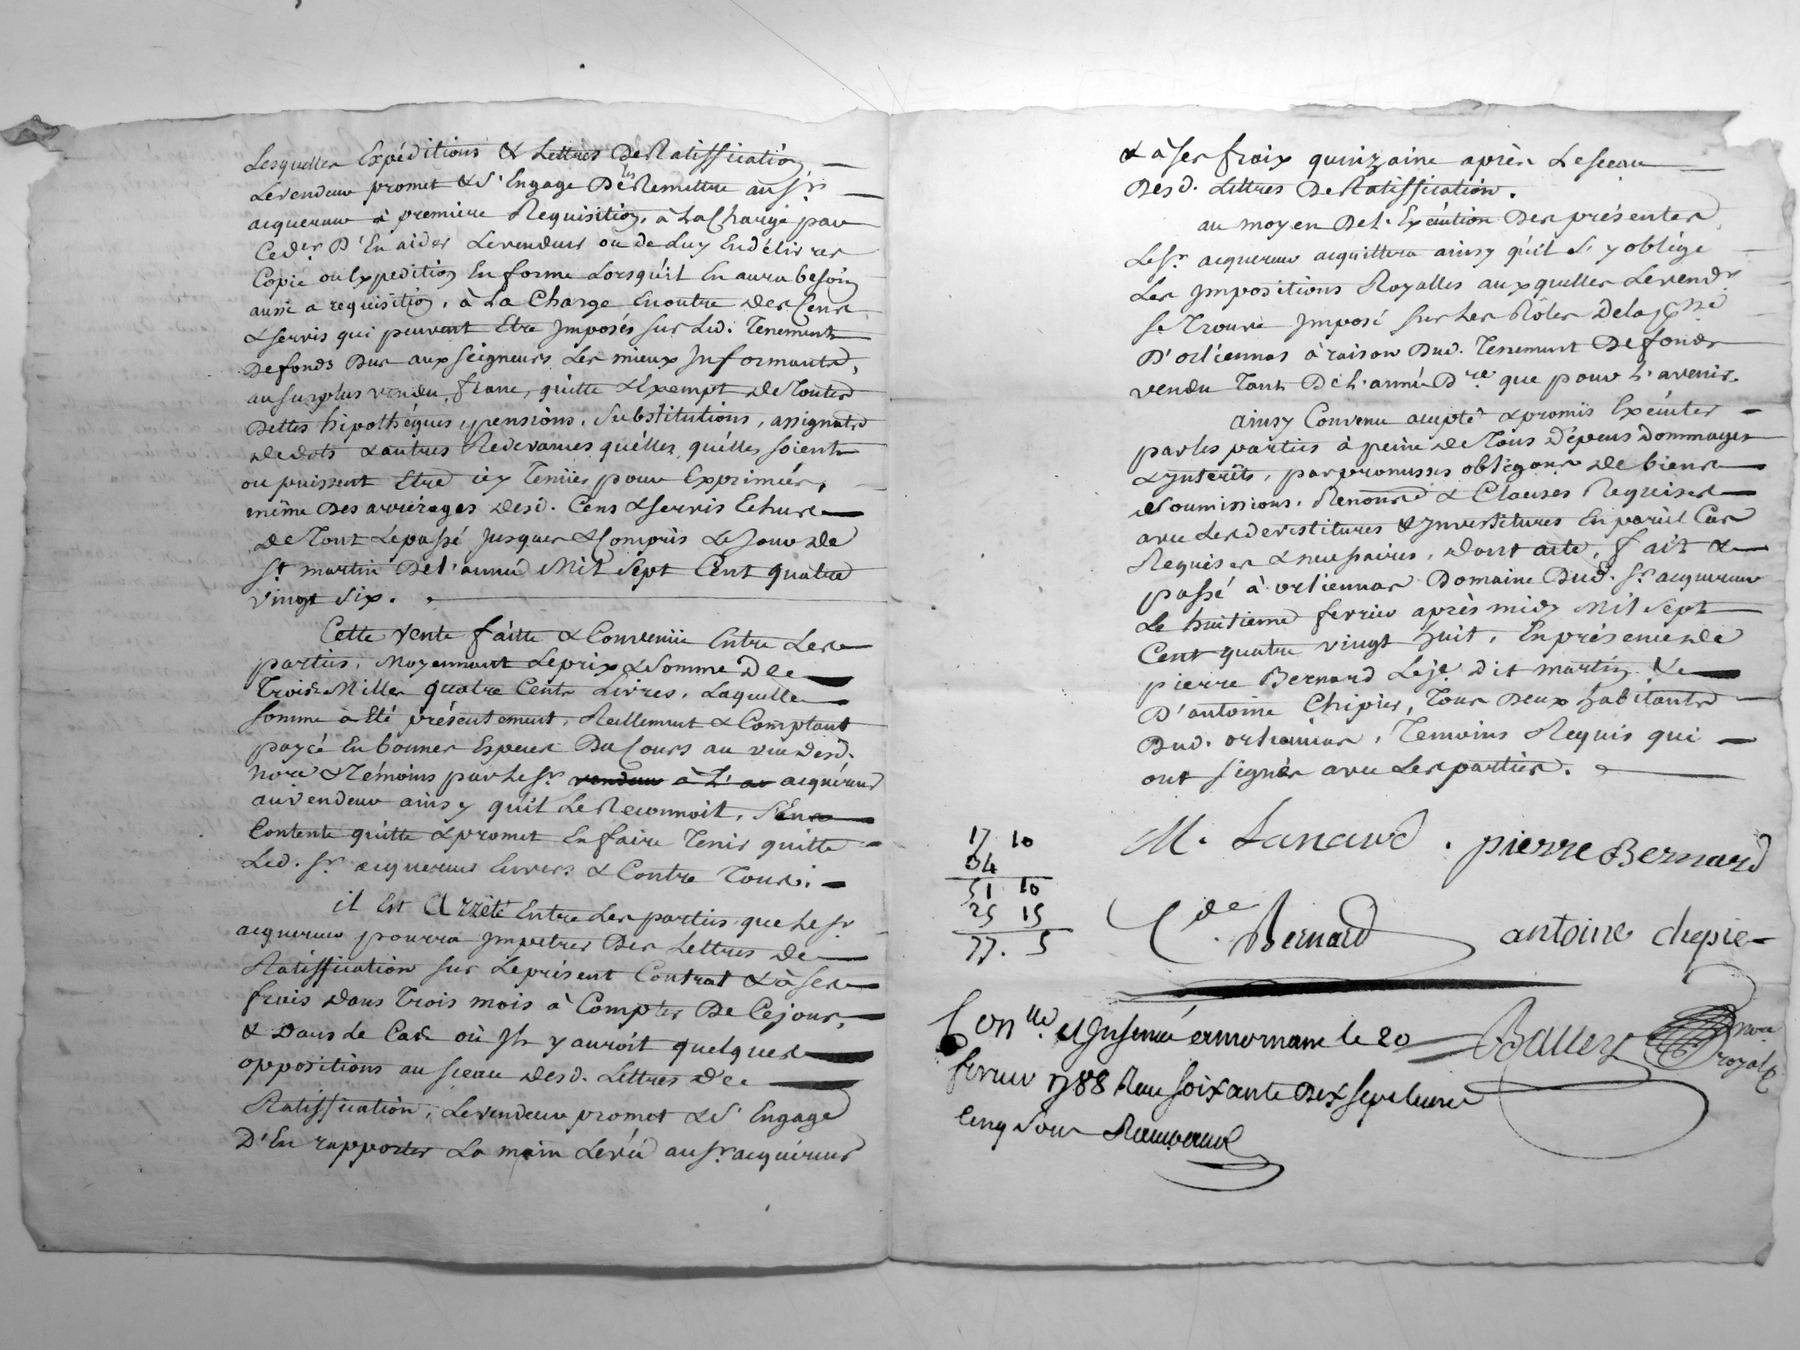 Lesquelles Expéditions & Lettres De Ratiffication
Le vendeur promet & S'Engage De les Remettre au Sr
acquereur à premiere Requisition, à La Charge par
Ced.er D'En aider Le vendeur ou de Luy En délivrer
Copie ou Expedition En forme Lorsqu'il En aura besoin
aussi a requisition, à La Charge En outre Des Cens
& servis qui peuvent Etre Jmposés sur Led. Tenement
De fonds Dus aux seigneurs Les mieux Jnformants,
au surplus vendu, franc, quitte & Exempt de Toutes
Dettes hipothéques, pensions, Substitutions, assignats
de dots & autres Redevances quélles quélles soient
ou puissent Etre icy Tenües pour Exprimées,
même Des arrérages desd. Cens & servis Echus
de Tout Le passé Jusques & Compris Le Jour de
St martin De L'année Mil Sept Cent quatre
vingt Six.
Cette vente faitte & Convenüe Entre Les
parties, Moyennant Le prix & Somme De
Trois Milles quatre Cents Livres, Laquelle
somme à Eté présentement, Réellement & Comptant
payée En bonnes Especes Du Cours au vu desd.
Nore & Témoins par Le Sr vendeur à L'ac acquéreur
au vendeur ainsy qu'il Le Reconnoit, S'En
Contente quitte & promet En faire Tenir quitte
Led. Sr acquereur Envers & Contre Tous.
il Est Arrêté Entre Les parties que Le Sr
acquereur pourra Jmpetrer Des Lettres De
Ratiffication sur Le présent Contrat & à Ses
frais dans Trois mois à Compter De Ce jour,
& Dans Le Cas où Jl y auroit quelques
oppositions au sceau desd. Lettres De
Ratiffication, Le vendeur promet & S'Engage
D'En rapporter La main Levée au Sr acquéreur
& à Ses fraix quinzaine après Le sceau
Desd. Lettres De Ratiffication.
au moyen De L'Exécution Des présentes
Le Sr acquereur acquittera ainsy qu'il S'y oblige
Les Jmpositions Royalles auxquelles Le vendr
se Trouve Jmposé sur Les Rôles De la
D'orliennas à raison Dud. Tenement De fonds
vendu Tant De L'année Dre que pour L'avenir.
ainsy Convenu accepté & promis Exécuter
par Les parties à peine de Tous Dépens Dommages
& Jnterêts, par promesses obligaons de biens
Soumissions, Renonons & Clauses Requises
avec Les devestitures & Jnvestitures En pareil Cas
Requises & necessaires, dont acte, fait &
passé à orliennas Domaine Dud. Sr acquereur
Le huitieme fevrier après midy Mil Sept
Cent quatre vingt huit, En présence de
pierre Bernard Le je. dit martin &
D'antoine Chipier, Tous Deux habitants
Dud. orliennas, Temoins Requis qui
ont signés avec Les parties.
M. Lanard . pierre Bernard
17 10
34
51 10
25 15
77. 5
Bernard antoine chepie
Conllé & Jnsinué a mornant le 20
fevrier 1788 Reçu soixante Dix sept livres
Cinq Sous
royal